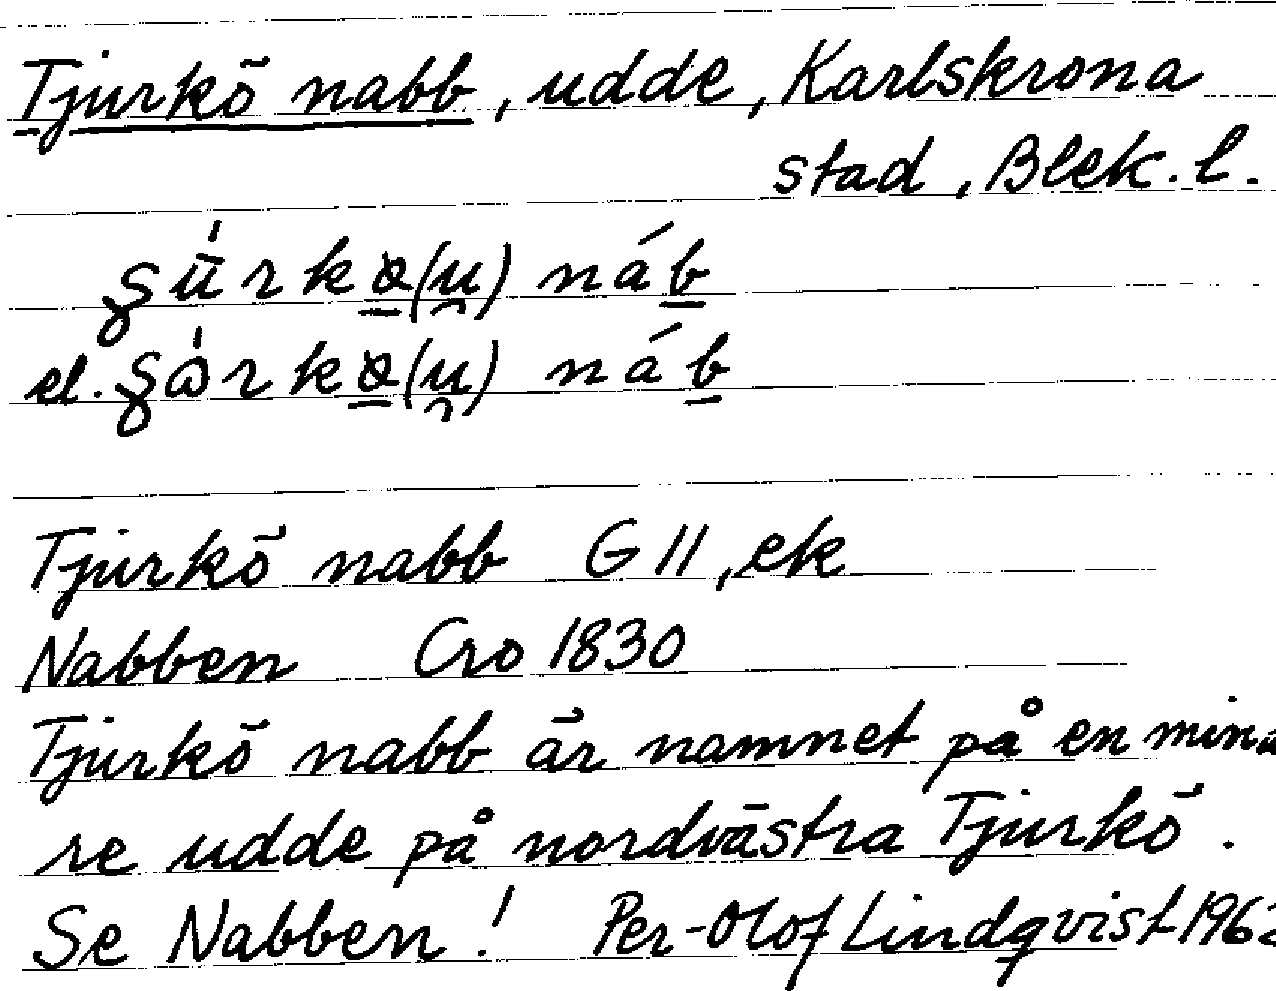 Tjurkö nabb, udde, Karlskrona
stad, Blek. l.
el.
Tjurkö nabb G 11, ek
Nabben Cro 1830
Tjurkö nabb är namnet på en mind
re udde på nordvästra Tjurkö.
Se Nabben! Per-Olof Lindqvist